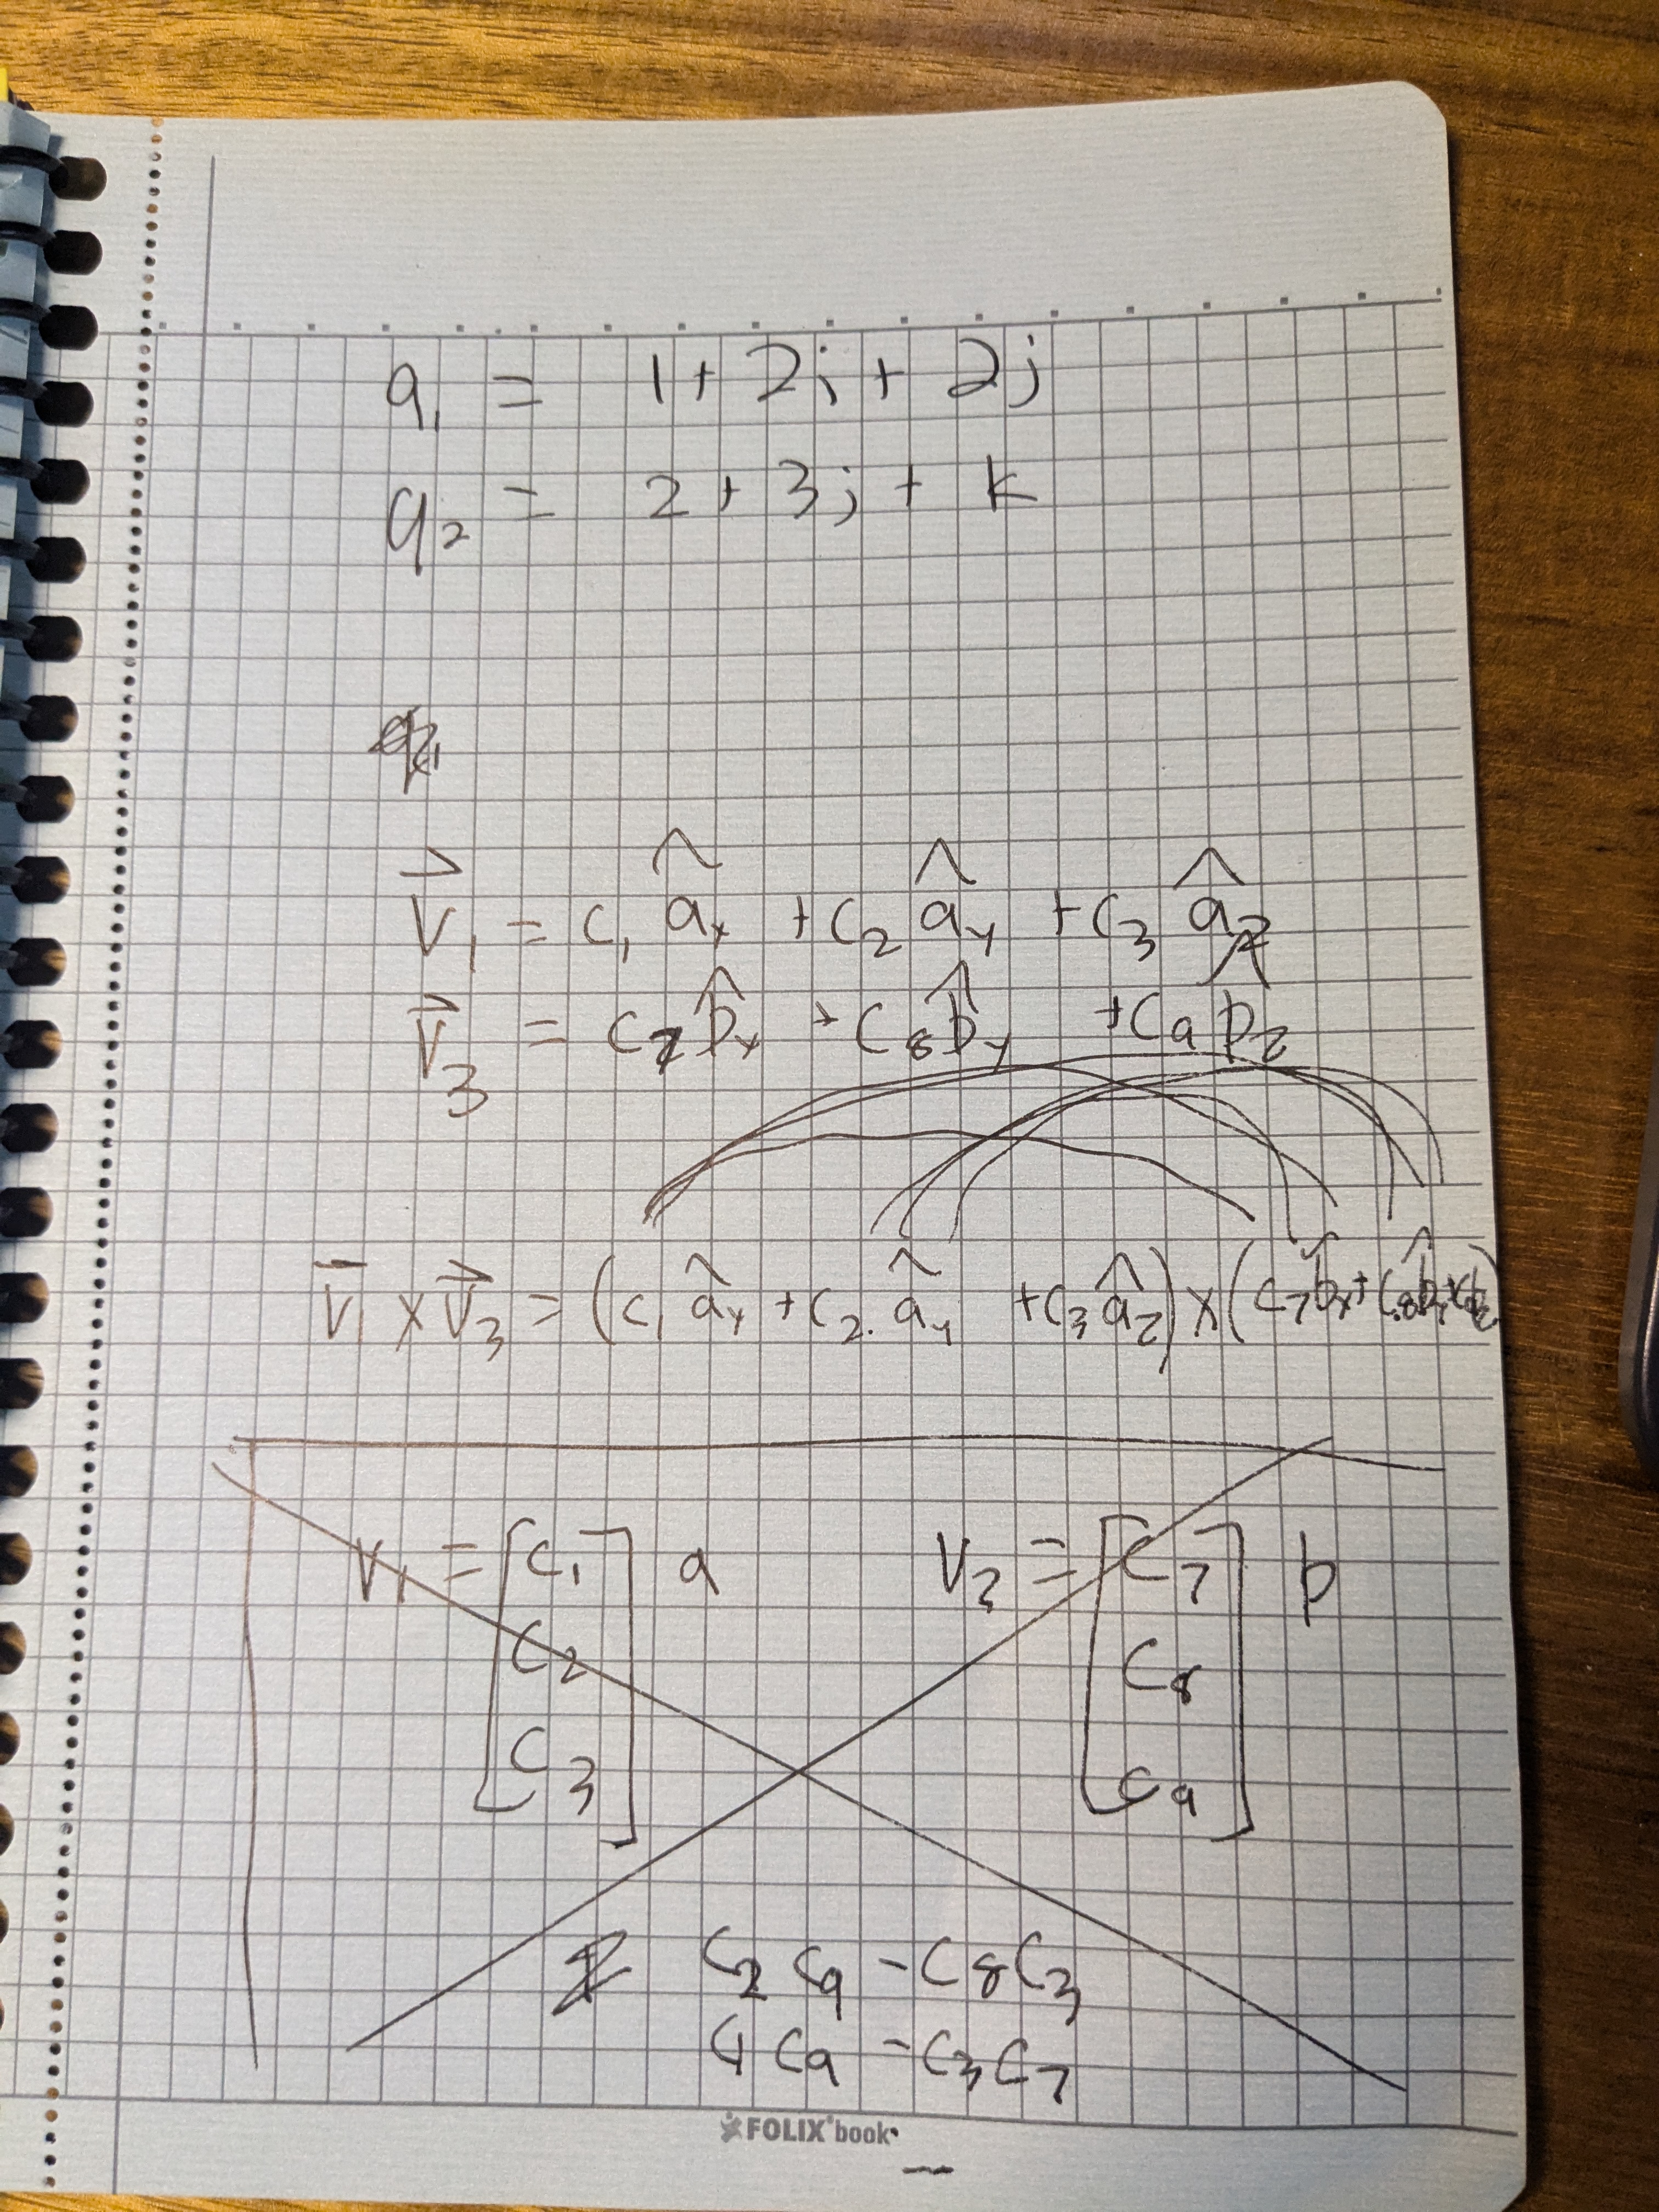 q₁ = 1 + 2i + 2j
q₂ = 2 + 3j + k
V⃗₁ = C₁ âₓ + C₂ âᵧ + C₃ â_z
V⃗₃ = C₇ b̂ₓ + C₈ b̂ᵧ + C₉ b̂_z
V⃗₁ × V⃗₃ = (C₁ âₓ + C₂ âᵧ + C₃ â_z) × (C₇ b̂ₓ + C₈ b̂ᵧ + C₉ b̂_z)
V₁ = [C₁ C₂ C₃] a V₃ = [C₇ C₈ C₉] b
C₂ C₉ - C₈ C₃
C₁ C₉ - C₃ C₇
FOLIX book